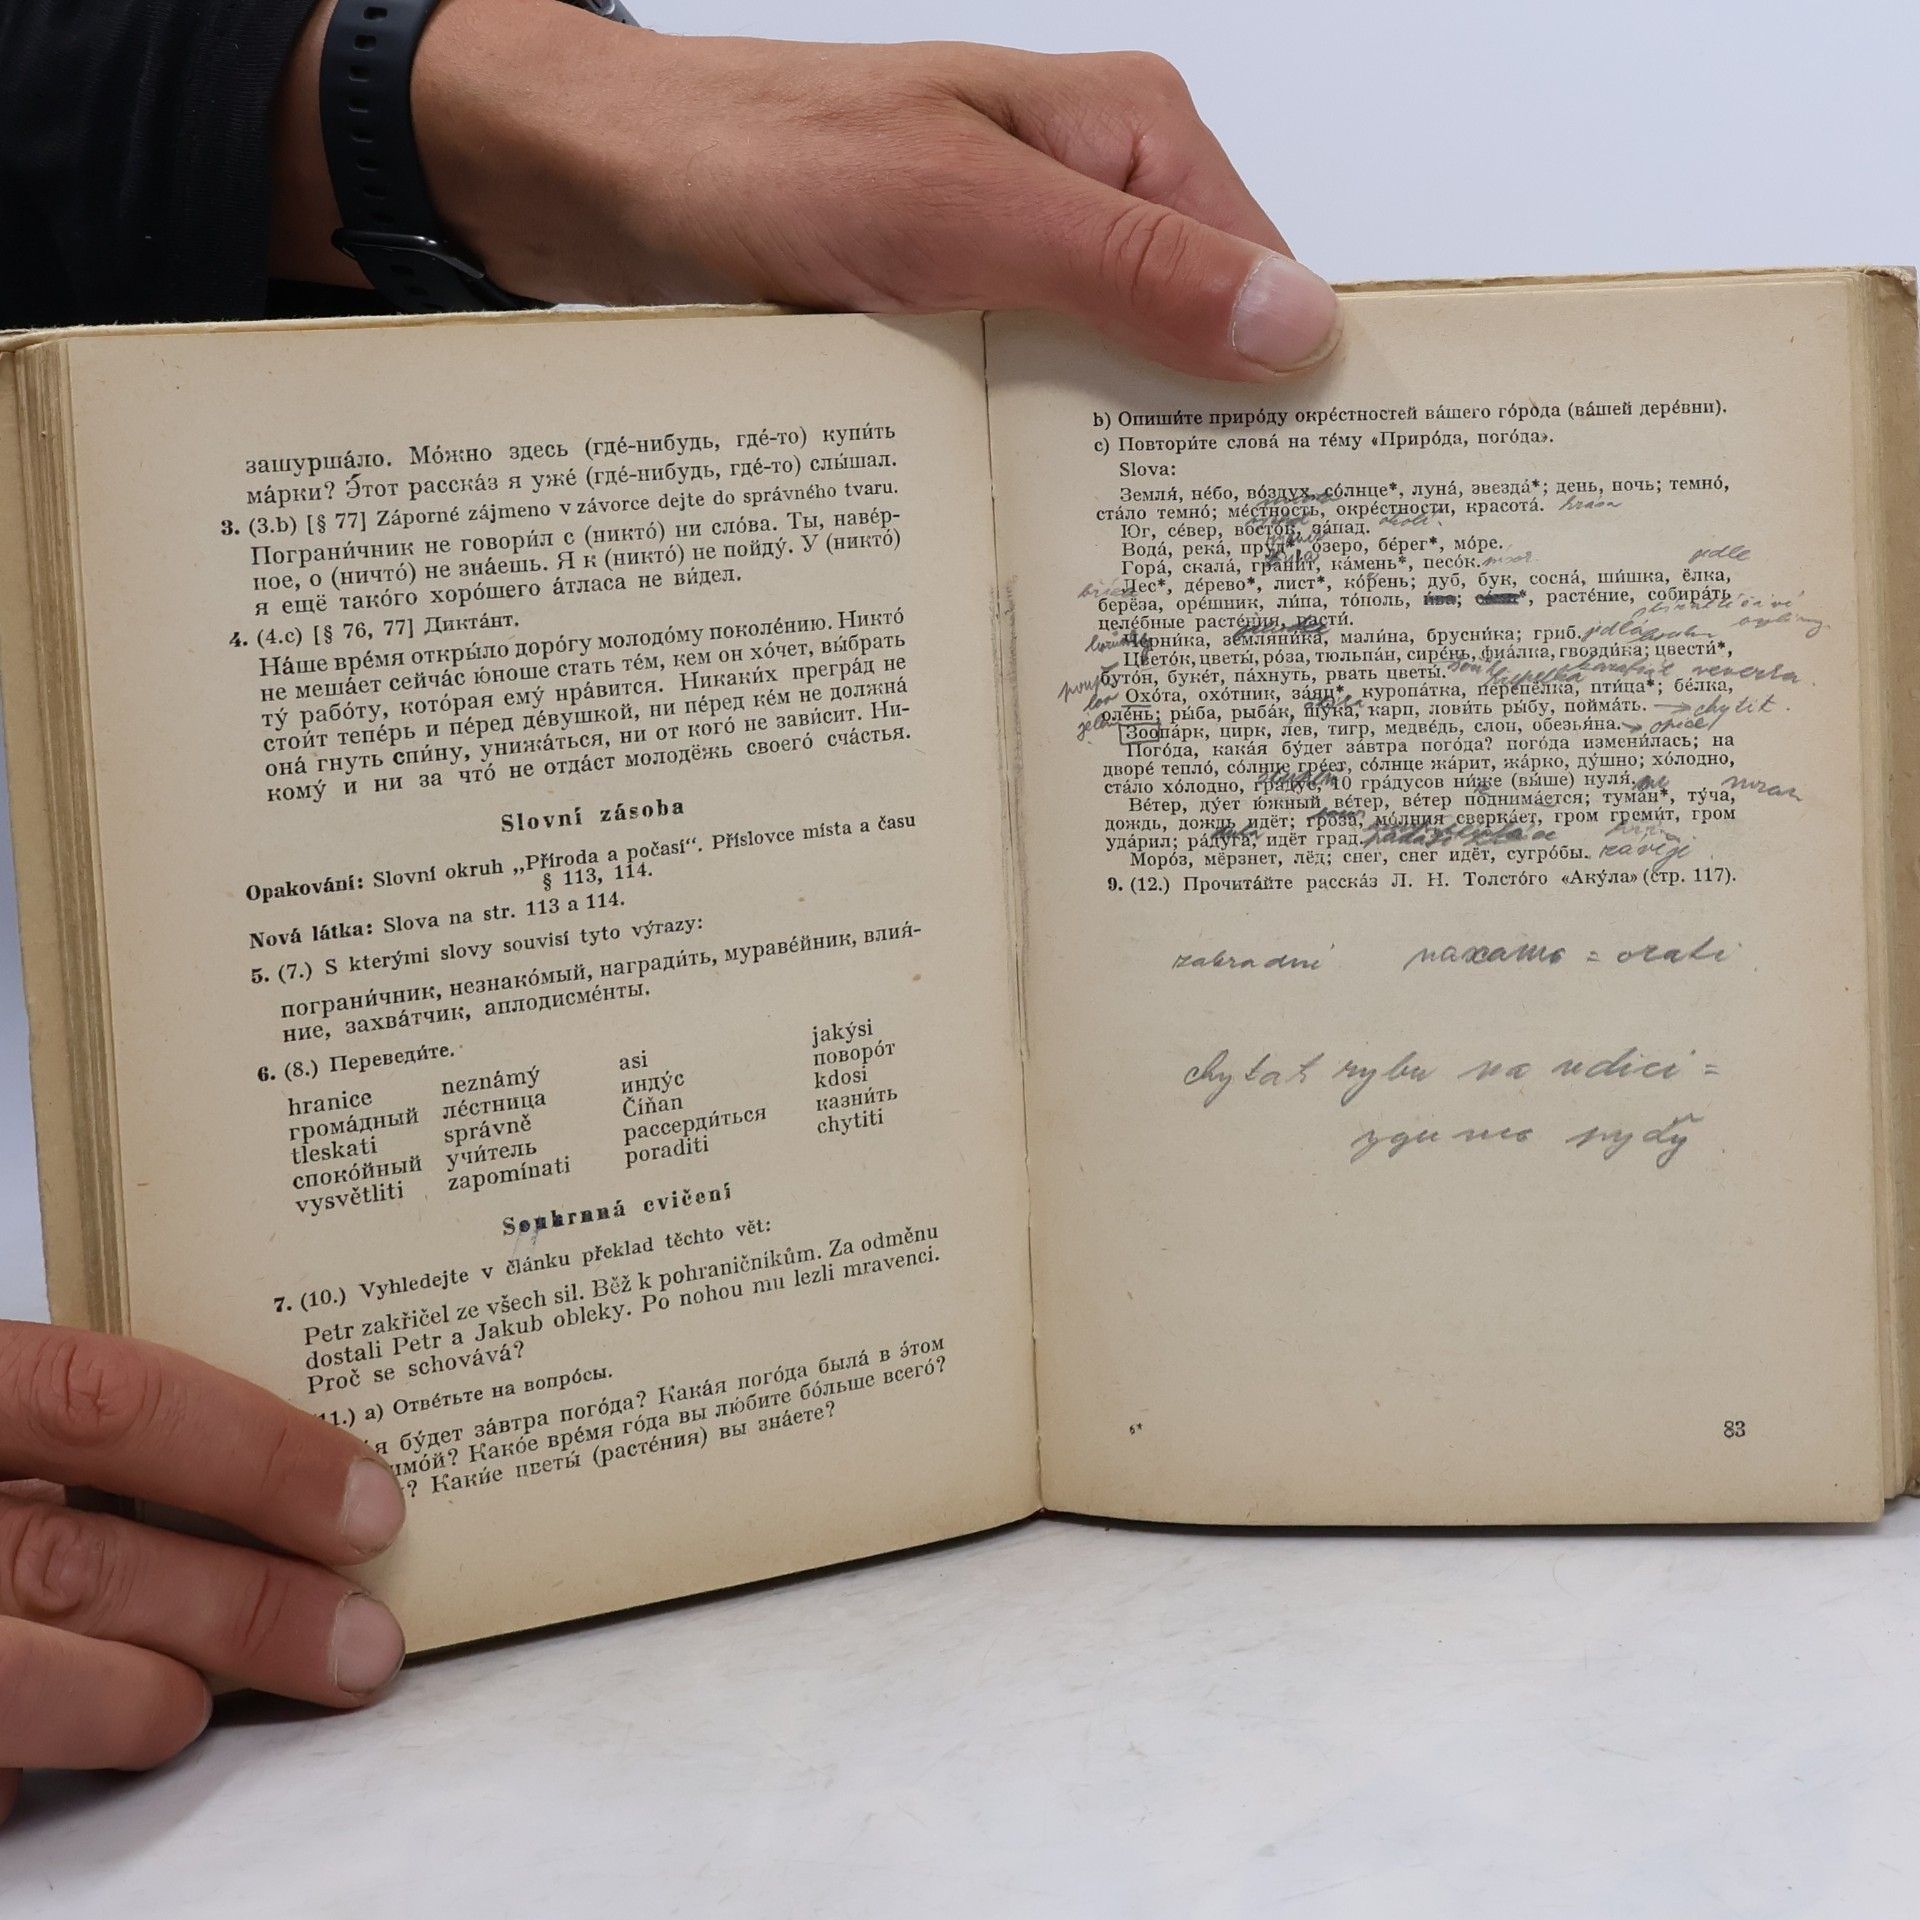 зашурша́ло. Мо́жно здесь (где́-нибудь, где́-то) купи́ть
ма́рки? Э́тот расска́з я уже́ (где́-нибудь, где́-то) слы́шал.
3. (3.b) [§ 77] Záporné zájmeno v závorce dejte do správného tvaru.
Пограни́чник не говори́л с (никто́) ни сло́ва. Ты, наве́р-
ное, о (ничто́) не зна́ешь. Я к (никто́) не пойду́. У (никто́)
я ещё тако́го хоро́шего а́тласа не ви́дел.
4. (4.c) [§ 76, 77] Дикта́нт.
На́ше вре́мя откры́ло доро́гу молодо́му поколе́нию. Никто́
не меша́ет сейча́с ю́ноше стать те́м, кем он хо́чет, вы́брать
ту́ рабо́ту, кото́рая ему́ нра́вится. Никаки́х прегра́д не
стои́т тепе́рь и пе́ред де́вушкой, ни пе́ред ке́м не должна́
она́ гнуть спи́ну, унижа́ться, ни от кого́ не зави́сит. Ни-
кому́ и ни за что́ не отда́ст молодёжь своего́ сча́стья.
Slovní zásoba
Opakování: Slovní okruh „Příroda a počasí“. Příslovce místa a času
§ 113, 114.
Nová látka: Slova na str. 113 a 114.
5. (7.) S kterými slovy souvisí tyto výrazy:
пограни́чник, незнако́мый, награди́ть, мураве́йник, влия́-
ние, захва́тчик, аплодисме́нты.
6. (8.) Переведи́те.
hranice neznámý asi jakýsi
грома́дный ле́стница инду́с поворо́т
tleskati správně Číňan kdosi
споко́йный учи́тель рассерди́ться казни́ть
vysvětliti zapomínati poraditi chytiti
Souhrnná cvičení
7. (10.) Vyhledejte v článku překlad těchto vět:
Petr zakřičel ze všech sil. Běž k pohraničníkům. Za odměnu
dostali Petr a Jakub obleky. Po nohou mu lezli mravenci.
Proč se schovává?
11.) a) Отве́тьте на вопро́сы.
бу́дет за́втра пого́да? Кака́я пого́да была́ в э́том
Како́е вре́мя го́да вы лю́бите бо́льше всего́?
? Каки́е цветы́ (расте́ния) вы зна́ете?
b) Опиши́те приро́ду окре́стностей ва́шего го́рода (ва́шей дере́вни).
c) Повтори́те слова́ на те́му «Приро́да, пого́да».
Slova:
Земля́, не́бо, во́здух, со́лнце*, луна́, звезда́*; день, ночь; темно́,
ста́ло темно́; ме́стность, окре́стности, красота́. krása
Юг, се́вер, восто́к, за́пад. okolí
Вода́, река́, пруд*, о́зеро, бе́рег*, мо́ре.
Гора́, скала́, грани́т, ка́мень*, песо́к.
jedle
Лес*, де́рево*, лист*, ко́рень; дуб, бук, сосна́, ши́шка, ёлка,
берёза, оре́шник, ли́па, то́поль, и́ва; расте́ние, собира́ть
целе́бные расте́ния, расти́.
Черни́ка, земляни́ка, мали́на, брусни́ка; гриб.
Цвето́к, цветы́, ро́за, тюльпа́н, сире́нь, фиа́лка, гвозди́ка; цвести́*,
буто́н, буке́т, па́хнуть, рвать цветы́.
Охо́та, охо́тник, за́яц*, куропа́тка, перепёлка, пти́ца*; бе́лка, veverka
lov
оле́нь; ры́ба, рыба́к, щу́ка, карп, лови́ть ры́бу, пойма́ть. → chytit.
Зоопа́рк, цирк, лев, тигр, медве́дь, слон, обезья́на. → opice
Пого́да, кака́я бу́дет за́втра пого́да? пого́да измени́лась; на
дворе́ тепло́, со́лнце гре́ет, со́лнце жа́рит, жа́рко, ду́шно; хо́лодно,
ста́ло хо́лодно, гра́дус, 10 гра́дусов ни́же (вы́ше) нуля́.
Ве́тер, ду́ет ю́жный ве́тер, ве́тер поднима́ется; тума́н*, ту́ча, mrak
дождь, дождь идёт; гроза́, мо́лния сверка́ет, гром греми́т, гром
уда́рил; ра́дуга, идёт град.
Моро́з, мёрзнет, лёд; снег, снег идёт, сугро́бы. závěji
9. (12.) Прочита́йте расска́з Л. Н. Толсто́го «Аку́ла» (стр. 117).
zahradní = orati
chytat rybu na udici =
6*
83